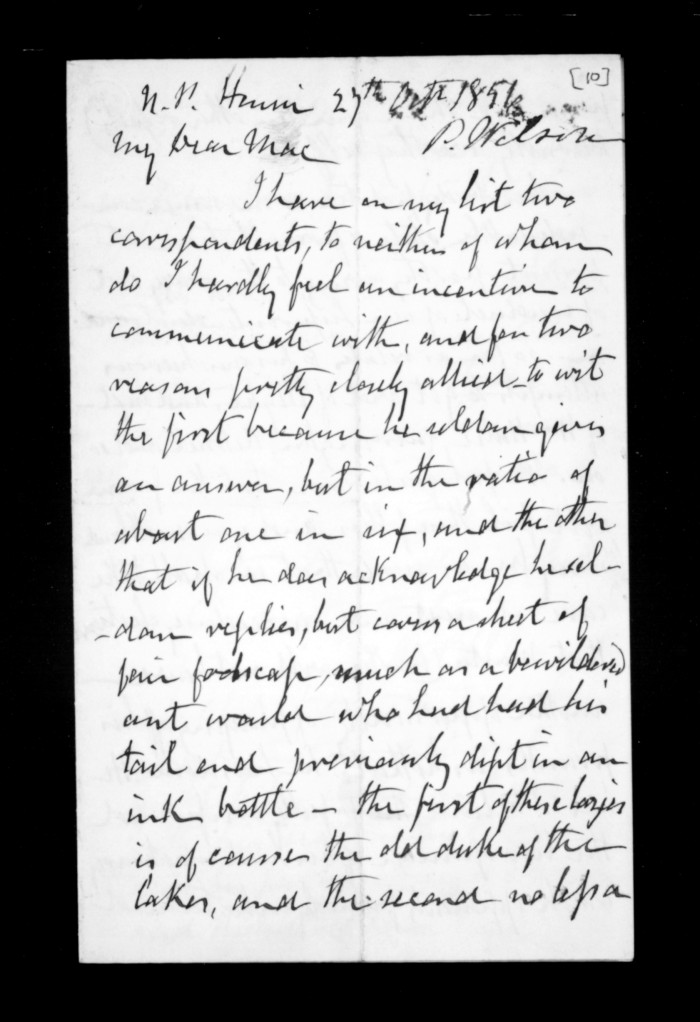 [10]
N.P. 27th Octr 1856
P. Wilson
My Dear Mac
I have on my list two
correspondents, to neither of whom
do I hardly feel an incentive to
communicate with, and for two
reasons pretty closely allied - to wit
the first because he seldom gives
an answer, but in the ratio of
about one in six, and the other
that if he does acknowledge he sel-
-dom replies, but covers a sheet of
fair foolscap, much as a bewildered
ant would who had had his
tail end previously dipt in an
ink bottle - the first of these
is of course the old duke of the
Lakes, and the second no less a